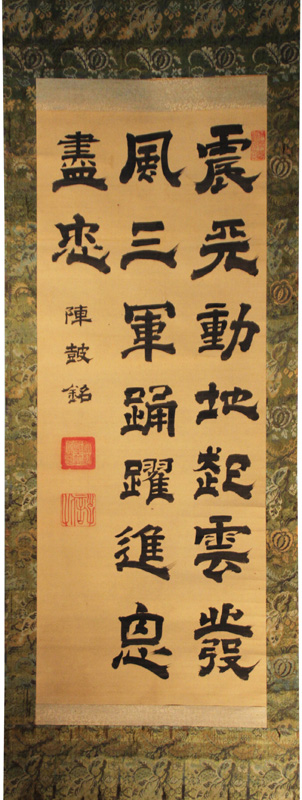 震天動地起雲發
風三軍踊躍進思
盡忠
陣鼓銘